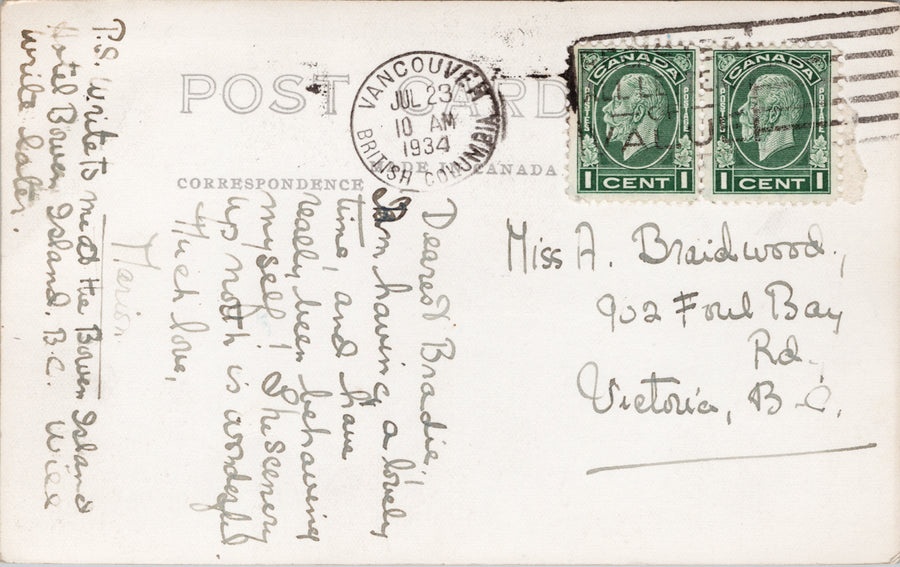 POST CARD
CORRESPONDENCE
MADE IN CANADA
VANCOUVER
JUL 23
10 AM
1934
BRITISH COLUMBIA
CANADA
POSTES
POSTAGE
1 CENT 1
CANADA
POSTES
POSTAGE
1 CENT 1
VALUE
Miss A. Braidwood,
902 Foul Bay
Rd.
Victoria, B.C.
Dearest Bradie!
Am having a lovely
time, and have
really been behaving
myself! The scenery
up north is wonderful.
Much love,
Marion.
P.S. Write to me at the Bowen Island
Hotel Bowen Island. B.C. Will
write later.